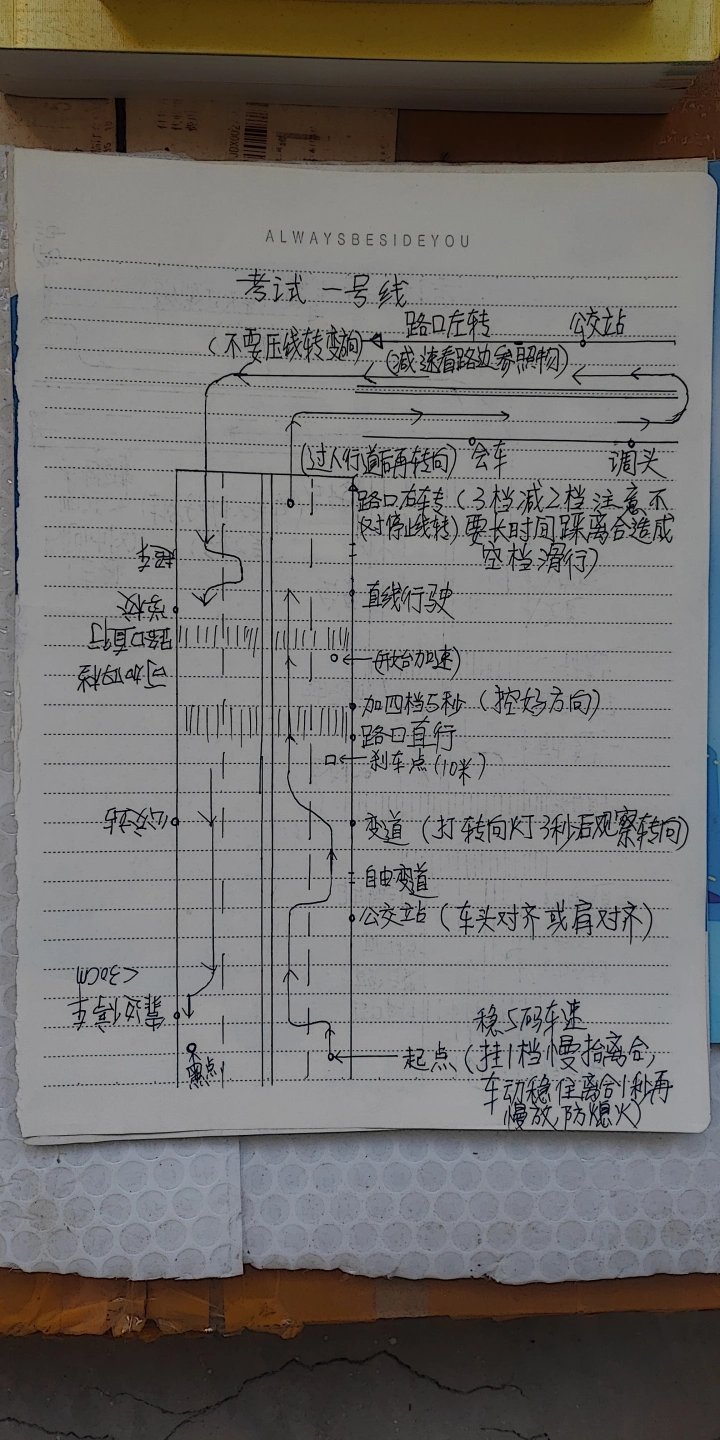 ALWAYSBESIDEYOU
考试一号线
路口左转
公交站
(不要压线转变向)
(减速看路边参照物)
(过人行道后再转向)
会车
调头
路口右转(3档减2档注意不
(对停止线转)要长时间踩离合造成
空档滑行)
超车
直线行驶
学校
路口直行
开始加速)
可加四档
加四档5秒(控好方向)
路口直行
刹车点(10米)
公交站
变道(打转向灯3秒后观察转向)
自由变道
公交站(车头对齐或肩对齐)
<30CM
靠边停车
稳5码车速
起点(挂1档慢抬离合,
车动稳住离合1秒再
慢放,防熄火)